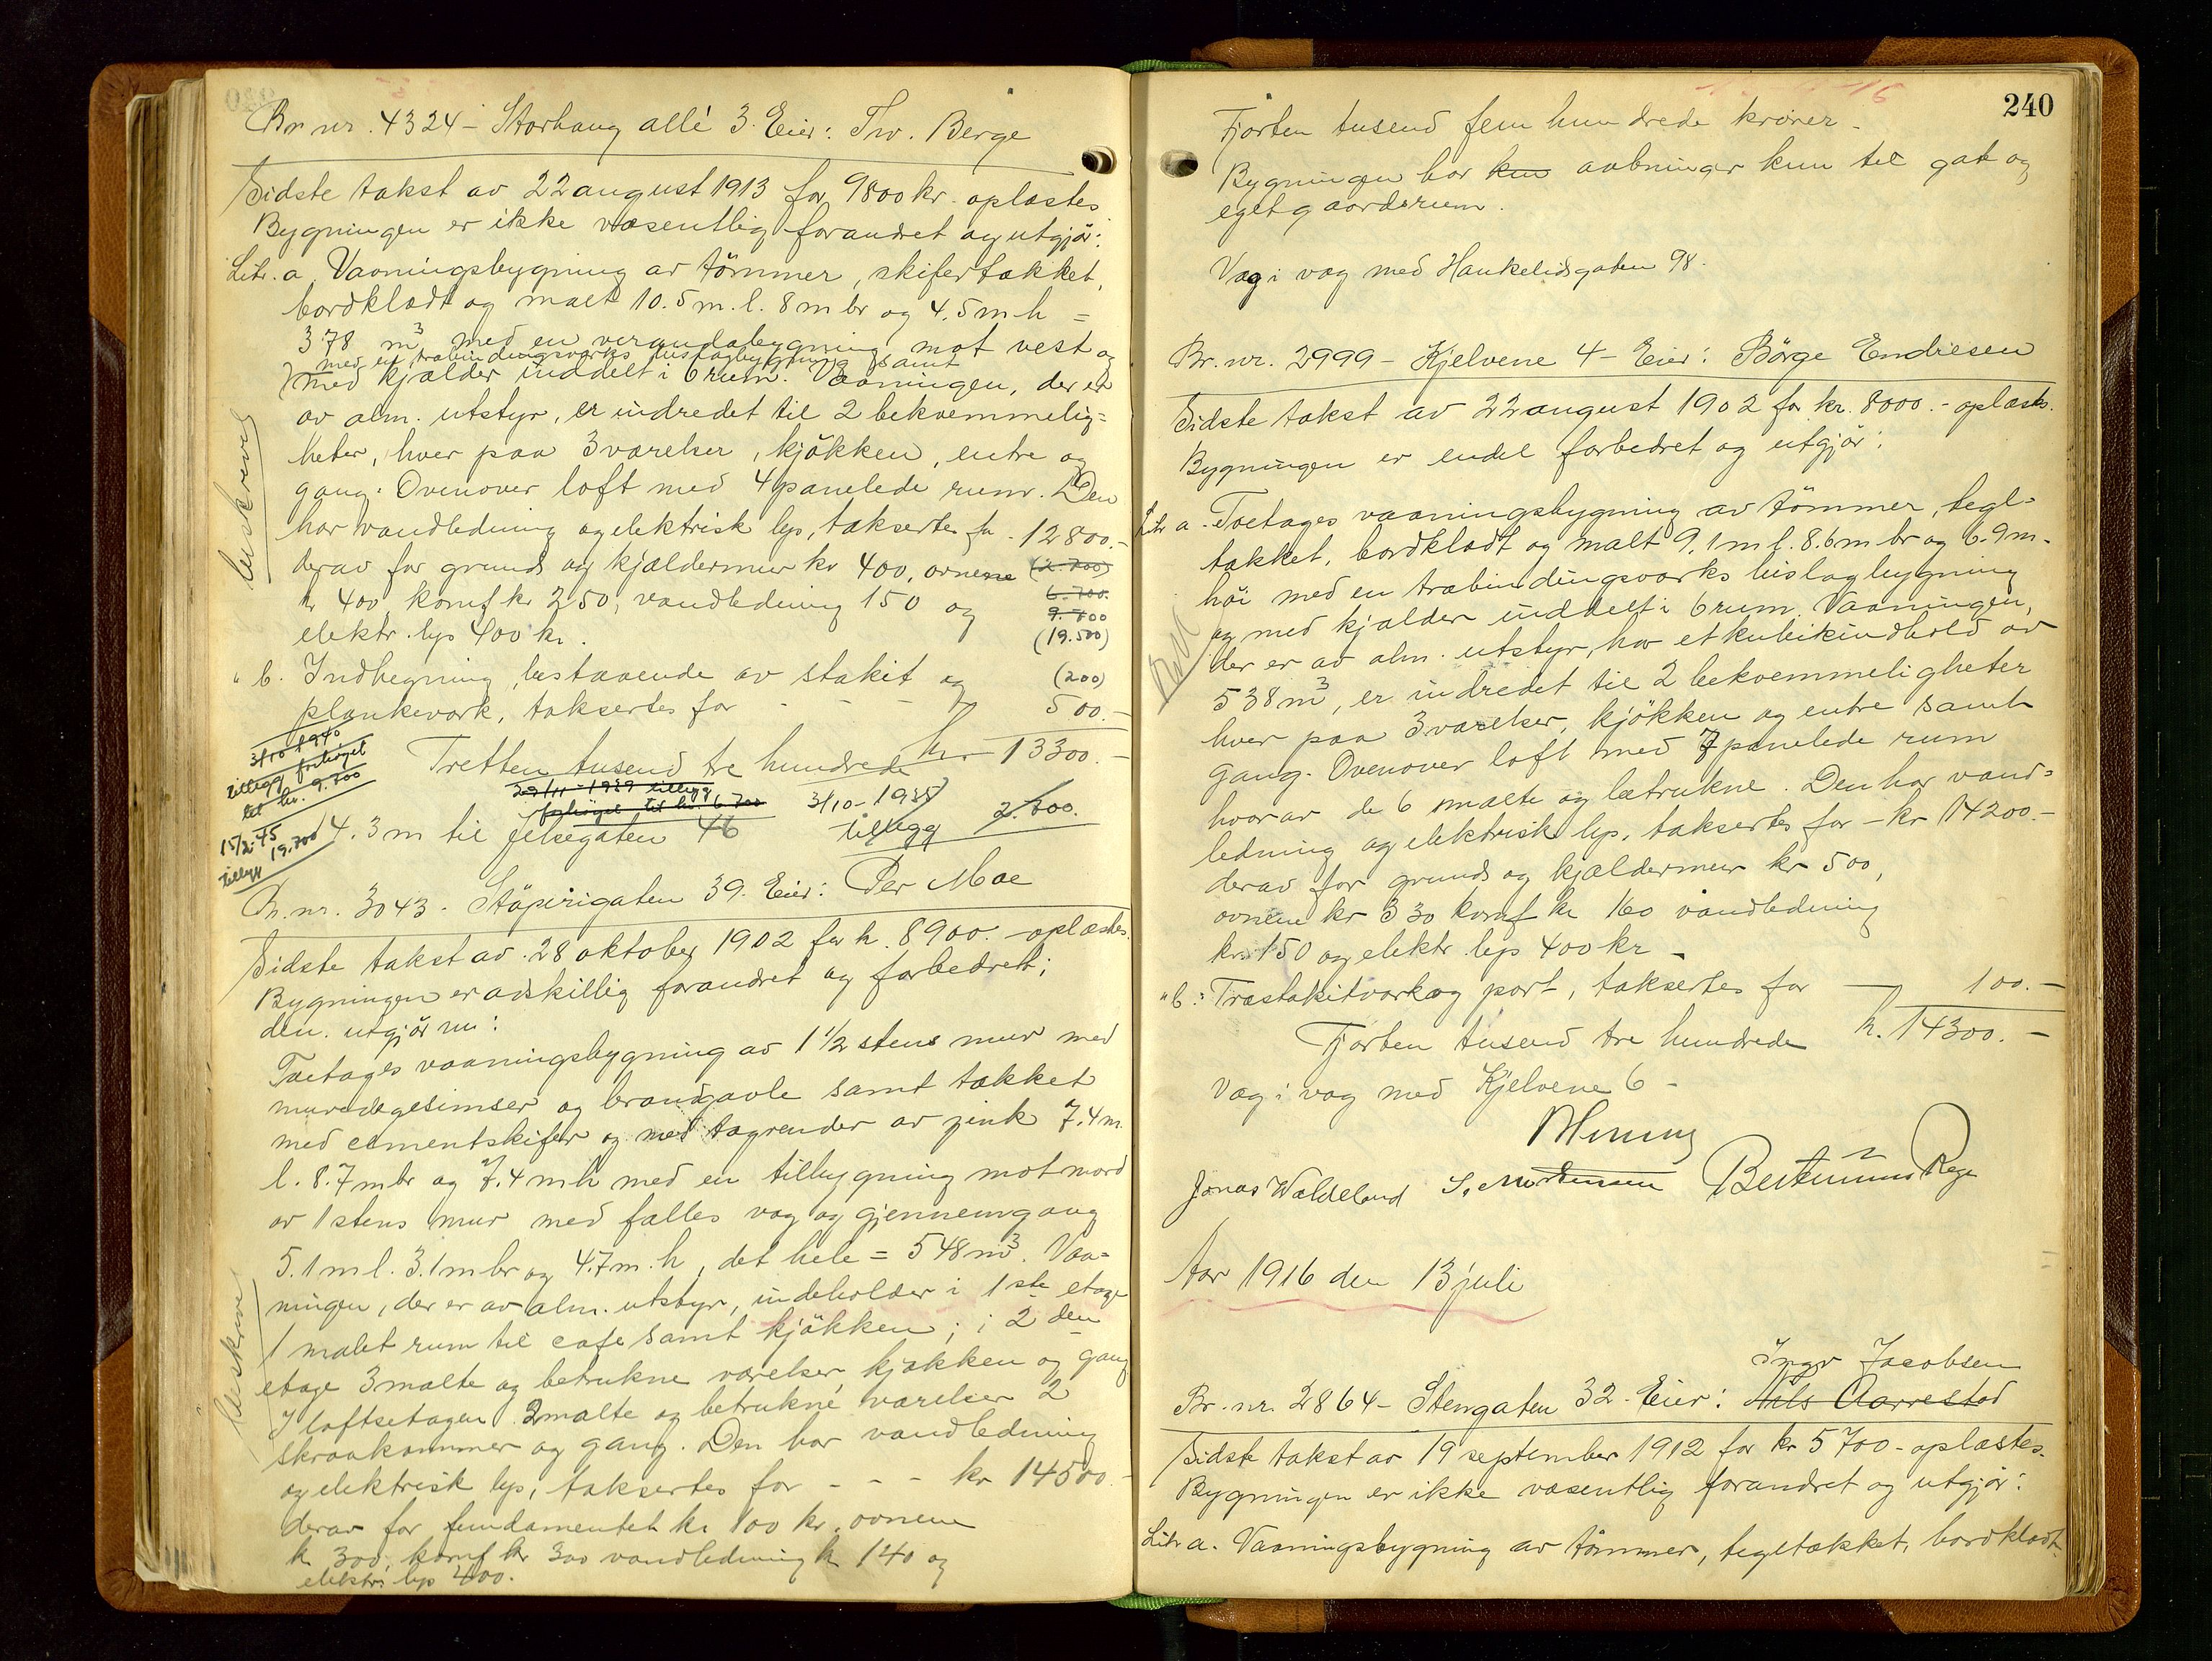 Br. nr. 4324 - Storhaug allé 3. Eier: Thv. Berge
Sidste takst av 22 august 1913 for 9800 kr. oplæstes
Bygningen er ikke væsentlig forandret og utgjør:
Litr. a. Vaaningsbygning av tømmer, skifertækket,
bordklædt og malt 10.5 m. l. 8 m br og 4.5 m h =
378 m³ med en verandabygning mot vest og
med en træbindingsverks bislagbygning samt
med kjælder inddelt i 6 rum. Vaaningen, der er
av alm. utstyr, er indredet til 2 bekvemmelig=
heter, hver paa 3 værelser, kjøkken, entre og
gang. Ovenover loft med 4 panelede rum. Den
har vandledning og elektrisk lys, takseres for - 12800.-
derav for grund og kjældermur kr 400, ovnene (2.700)
kr 400, komf kr 250, vandledning 150 og 6.700.
elektr. lys 400 kr. 9.700
(19.500)
" b. Indhegning, bestaaende av stakit og (200)
plankeverk, taksertes for - - - 500.-
Tretten tusend tre hundrede kr 13300.-
beskrevet
3/10 1940
tillegg forhøiet
til kr. 9.700
15/2-45
tillegg 19.700
29/11-1939 tillegg
forhøiet til kr. 6 700
3/10-1935
tillegg 2.700.
4.3 m til Jelsegaten 46
Br. nr. 3043 - Støperigaten 39. Eier: Per Moe
Sidste takst av 28 oktober 1902 for kr. 8900.- oplæstes.
Bygningen er adskillig forandret og forbedret;
den utgjør nu:
Toetages vaaningsbygning av 1 1/2 stens mur med
murede gesimser og brandgavle samt tækket
med cementskifer og med tagrender av zink 7.4 m.
l. 8.7 m br og 7.4 m h med en tilbygning mot nord
av 1 stens mur med fælles væg og gjennemgang
5.1 m l. 3.1 m br og 4.7 m. h, det hele = 548 m³. Vaa=
ningen, der er av alm. utstyr, indeholder i 1ste etage
1 malet rum til cafe samt kjøkken; i 2den
etage 3 malte og betrukne værelser, kjøkken og gang
I loftsetagen 2 malte og betrukne værelser 2
skraakammer og gang. Den har vandledning
og elektrisk lys, taksertes for - - - kr 14500.-
derav for fundamentet kr 100 kr, ovnene
kr 300, komf kr 300 vandledning kr 140 og
elektr. lys 400.
beskrevet
240
Fjorten tusend fem hundrede kroner -
Bygningen har kun aabninger kun til gate og
eget gaardsrum.
Væg i væg med Haukelidsgaten 98.
Br. nr. 2999 - Kjelvene 4 - Eier: Børge Endresen
Sidste takst av 22 august 1902 for kr. 8000.- oplæstes.
Bygningen er endel forbedret og utgjør:
Litr a. Toetages vaaningsbygning av tømmer, tegl=
tækket, bordklædt og malt 9.1 m l. 8.6 m br og 6.9 m.
høi med en træbindingsverks bislagbygning
og med kjælder inddelt i 6 rum. Vaaningen,
der er av alm. utstyr, har et kubikindhold av
538 m³, er indredet til 2 bekvemmeligheter
hver paa 3 værelser, kjøkken og entre samt
gang. Ovenover loft med 7 panelede rum
hvorav de 6 malte og betrukne. Den har vand=
ledning og elektrisk lys, taksertes for - kr 14200.-
derav for grund og kjældermur kr 500,
ovnene kr 330 komf kr 160 vandledning
kr 150 og elektr. lys 400 kr -
" b. Træstakitverk og port, taksertes for - 100.-
Fjorten tusend tre hundrede kr. 14300.-
Væg i væg med Kjelvene 6 -
Jonas Waldeland S. Mortensen Rege
Aar 1916 den 13 juli
Ingv Jacobsen
Br. nr. 2864 - Stengaten 32 - Eier: Nils Aarrestad
Sidste takst av 19 september 1912 for kr 5700 - oplæstes.
Bygningen er ikke væsentlig forandret og utgjør:
Litr a. Vaaningsbygning av tømmer, tegltækket, bordklædt